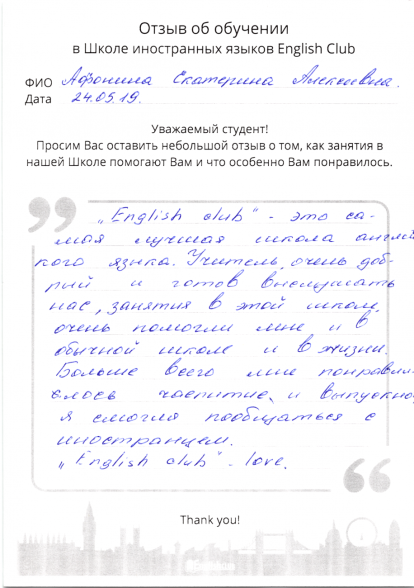 Отзыв об обучении
в Школе иностранных языков English Club
ФИО Афонина Екатерина Алексеевна.
Дата 24.05.19.
Уважаемый студент!
Просим Вас оставить небольшой отзыв о том, как занятия в
нашей Школе помогают Вам и что особенно Вам понравилось.
„English club" - это са-
мая лучшая школа англий
кого языка. Учитель, очень доб-
рый и готов выслушать
нас, занятия в этой школе
очень помогли мне и в
обычной школе и в жизни.
Больше всего мне понрави-
лось чаепитие, и выпускно
я смогла пообщаться с
иностранцем.
„English club" - love.
Thank you!